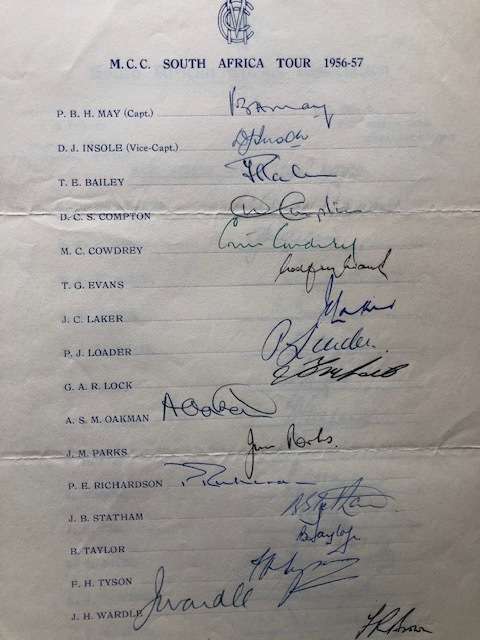 M.C.C. SOUTH AFRICA TOUR 1956-57
P. B. H. MAY (Capt.) PBH May
D. J. INSOLE (Vice-Capt.) D J Insole
T. E. BAILEY
D. C. S. COMPTON Compton
M. C. COWDREY Colin Cowdrey
T. G. EVANS Godfrey Evans
J. C. LAKER
P. J. LOADER P Loader
G. A. R. LOCK
A. S. M. OAKMAN A Oakman
J. M. PARKS Jim Parks.
P. E. RICHARDSON
J. B. STATHAM B Statham
B. TAYLOR B Taylor
F. H. TYSON
J. H. WARDLE J Wardle
F R Brown